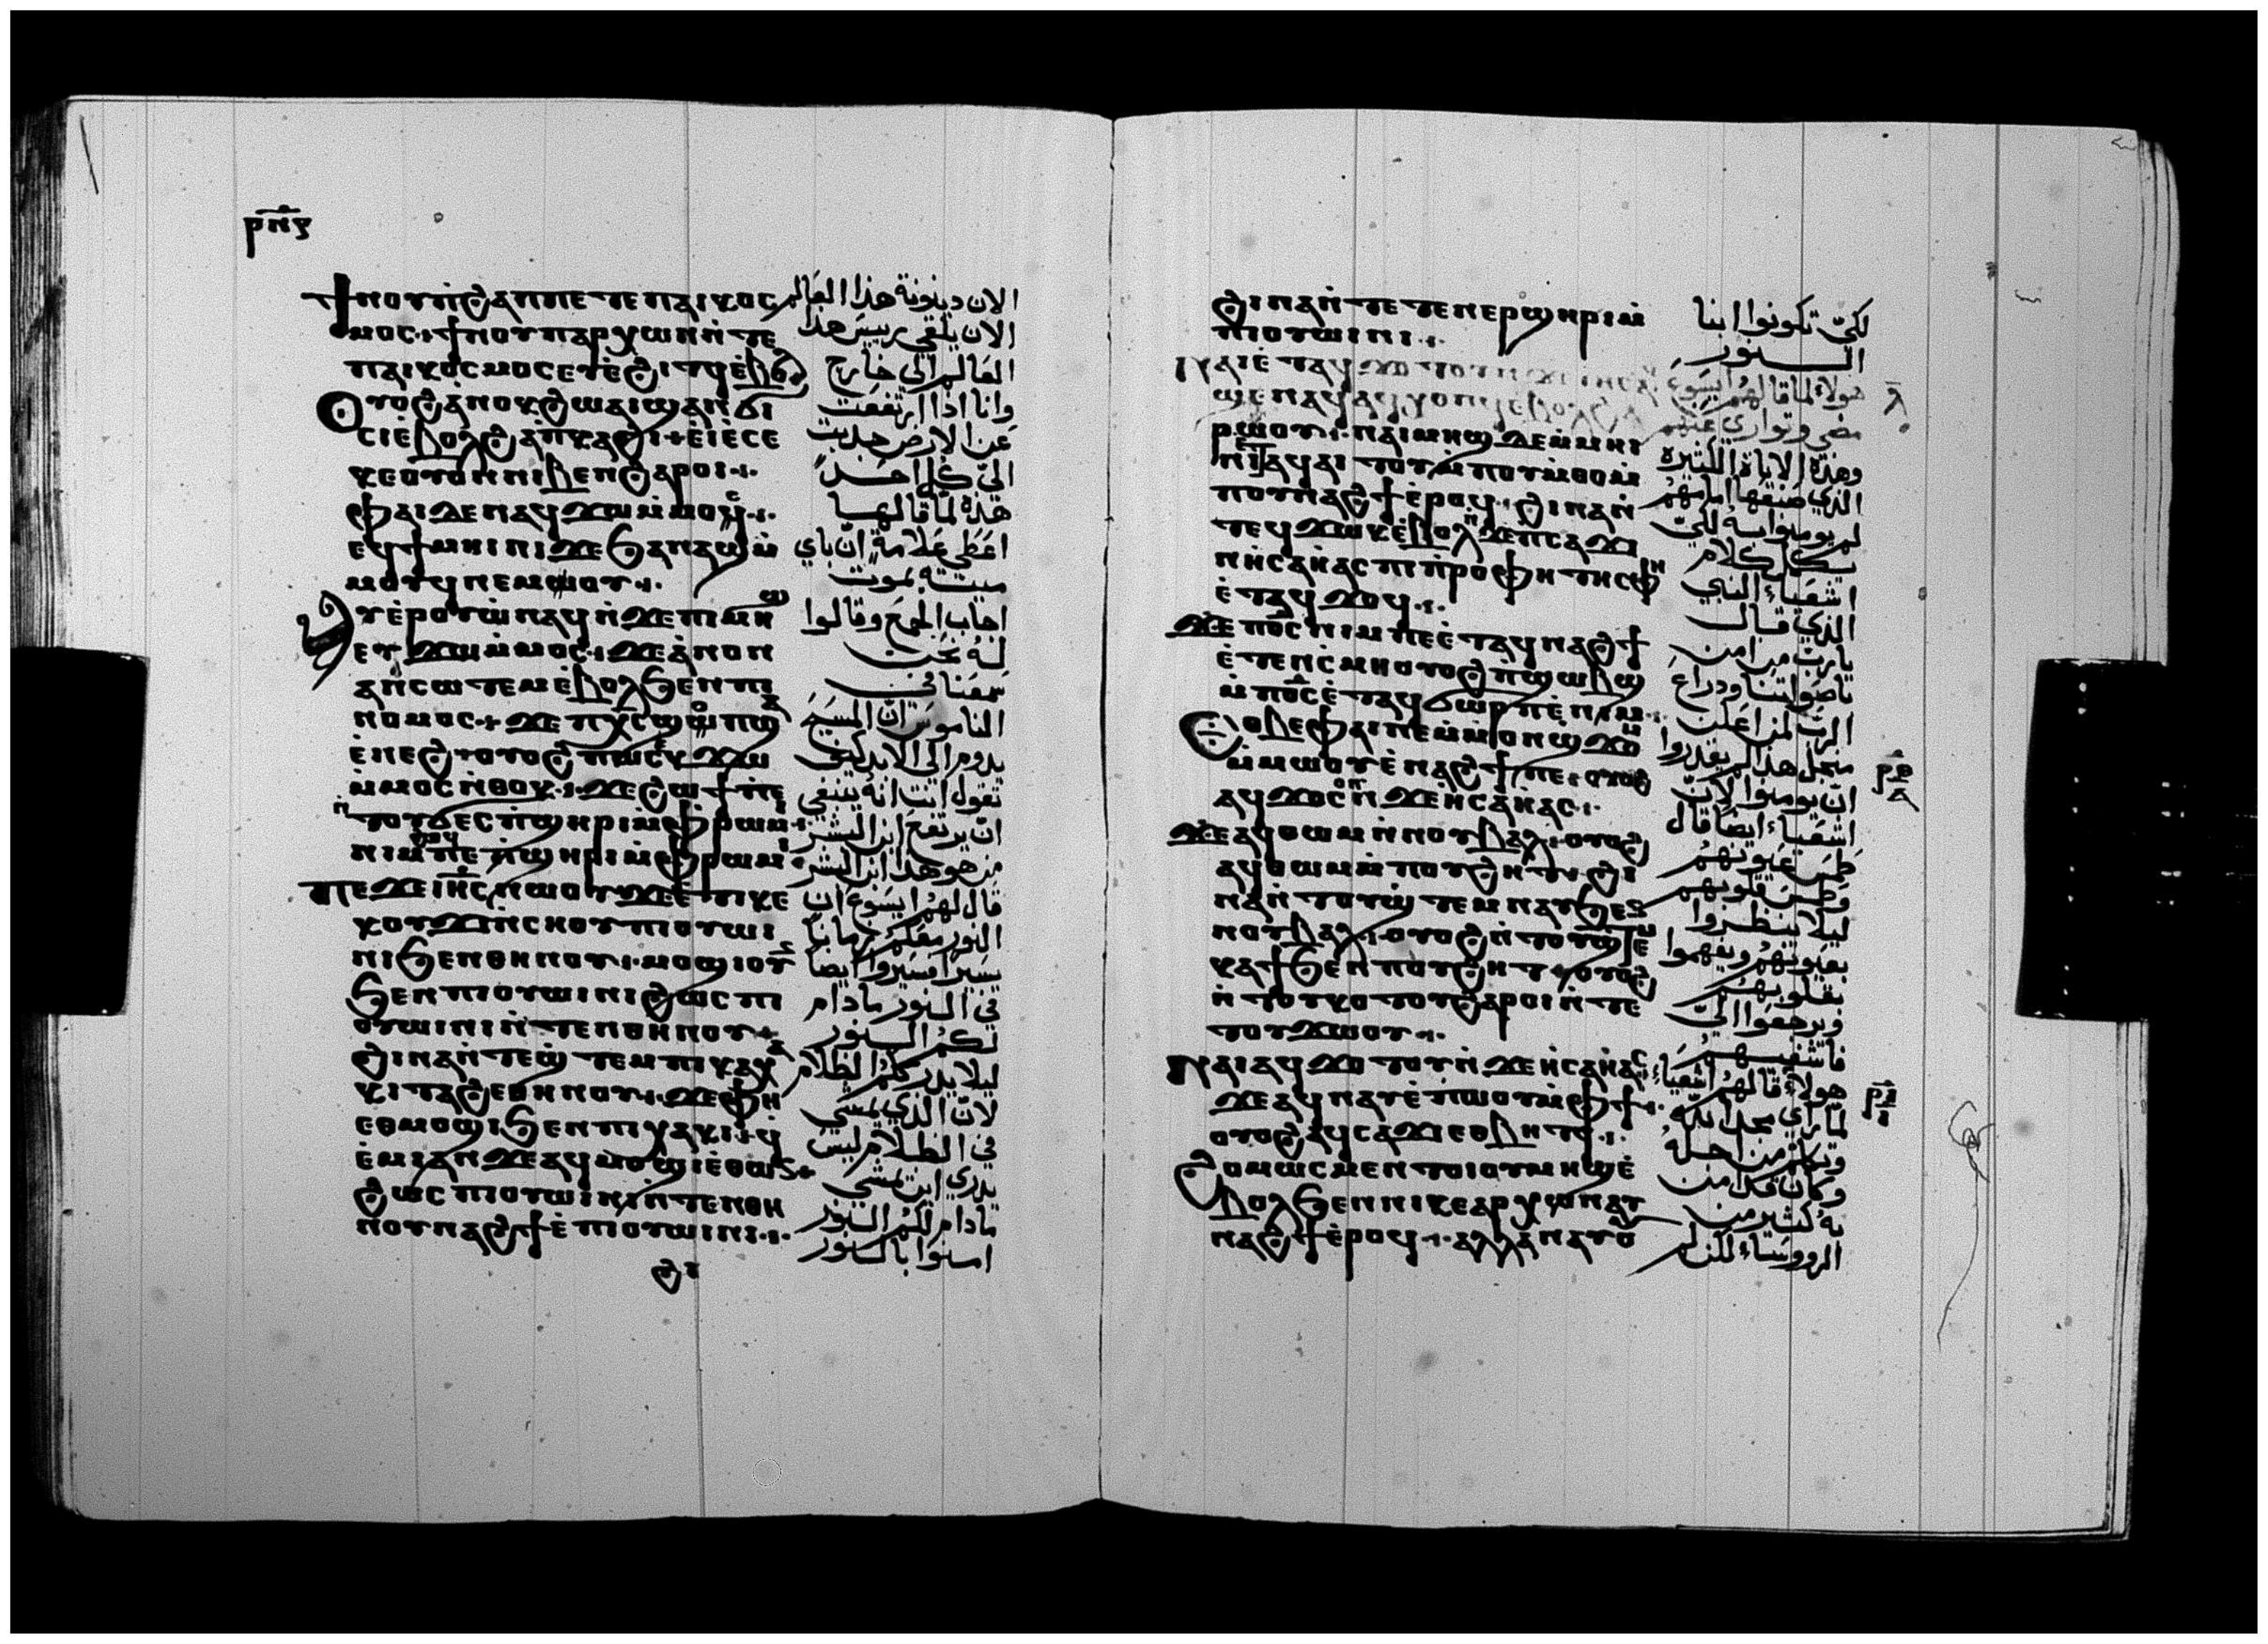 ⲣⲛⲋ
Ϯⲛⲟⲩⲡ̀ϩⲁⲡⲡⲉⲧⲉⲡⲁⲓⲕⲟⲥ
ⲙⲟⲥ ϯⲛⲟⲩⲡⲁⲣⲭⲱⲛⲛ̀ⲧⲉ
ⲡⲁⲓⲕⲟⲥⲙⲟⲥⲉⲩⲉ̀ϩⲓⲧϥⲉ̀ⲃⲟⲗ
Ⲟⲩⲟϩⲁ̀ⲛⲟⲕϩⲱⲁⲓϣⲁⲛϭⲓ
ⲥⲓⲉ̀ⲃⲟⲗϩⲁⲡⲕⲁϩⲓ ⲉ̀ⲓⲉ̀ⲥⲉ
ⲕⲉⲟⲩⲟⲛⲛⲓⲃⲉⲛϩⲁⲣⲟⲓ
ⲫⲁⲓⲇⲉⲛⲁϥϫⲱⲙ̀ⲙⲟϥ
ⲉϥϯⲙⲏⲓⲛⲓϫⲉϧⲁⲛⲁϣⲙ̀
ⲙⲟⲩϥⲛⲉⲙⲱⲟⲩ
Ⲁⲩⲉⲣⲟⲩⲱ̀ⲛⲁϥⲛ̀ϫⲉⲡⲓⲙⲏϣ
ⲉⲩϫⲱⲙ̀ⲙⲟⲥ ϫⲉⲁ̀ⲛⲟⲛ
ⲁⲛⲥⲱⲧⲉⲙⲉ̀ⲃⲟⲗϧⲉⲛⲡⲓ
ⲛⲟⲙⲟⲥ ϫⲉⲡⲭ̅ⲥ̅ϣⲟⲡϣⲁ
ⲉ̀ⲛⲉϩ ⲟⲩⲟϩⲡⲱⲥⲕ̀ϫⲱ
ⲙ̀ⲙⲟⲥⲛ̀ⲑⲟⲕ ϫⲉϩⲱϯⲡⲉ
ⲛ̀ⲧⲟⲩϭⲉⲥⲡ̀ϣⲏⲣⲓⲙ̀ⲫⲣⲱⲙⲓ
ⲛⲓⲙⲡⲉⲫⲁⲓⲡ̀ϣⲏⲣⲓⲙ̀ⲫⲣⲱⲙⲓ
ⲡⲉϫⲉⲓⲏ̅ⲥ̅ⲛⲱⲟⲩϫⲉⲉ̀ⲧⲓⲕⲉ
ⲕⲟⲩϫⲓⲛ̀ⲥⲏⲟⲩⲡⲓⲟⲩⲱⲓ
ⲛⲓϧⲉⲛⲑⲏⲛⲟⲩ ⲙⲟϣⲓⲟⲩⲛ
ϧⲉⲛⲡⲓⲟⲩⲱⲓⲛⲓϩⲱⲥⲡⲓ
ⲟⲩⲱⲓⲛⲓⲛ̀ⲧⲉⲛⲑⲏⲛⲟⲩ
ϩⲓⲛⲁⲛ̀ⲧⲉϣ̀ⲧⲉⲙⲡⲓⲭⲁ
ⲕⲓⲧⲁϩⲉⲑⲏⲛⲟⲩ ϫⲉⲫⲏ
ⲉⲑⲙⲟϣⲓϧⲉⲛⲡⲓⲭⲁⲕⲓ ϥ̀
ⲉ̀ⲙⲓⲁⲛϫⲉⲁϥⲙⲟϣⲓⲉ̀ⲑⲱⲛ
ϩⲱⲥⲡⲓⲟⲩⲱⲓⲛⲓⲛ̀ⲧⲉⲛⲑⲏ
ⲛⲟⲩⲛⲁϩϯⲉ̀ⲡⲓⲟⲩⲱⲓⲛⲓ
ϩⲓ
الان دينونة هذا العالم
الان يلقي رييس هذا
العالم الي خارج
وانا اذا ارتفعت
عن الارض جذبت
الي كل احد
هذه لما قالها
اعطي علامة ان باي
ميتة يموت
اجاب الجمع وقالوا
له نحن
سمعنا في
الناموس ان المسيح
يدوم الي الابد كيف
تقول انت انه ينبغي
ان يرتفع ابن البشر
من هو هذا ابن البشر
قال لهم ايسوع ان
النور معكم زمانا
يسيرا فسيروا ايضا
في النور مادام
لكم النور
ليلا يدرككم الظلام
لان الذي يمشي
في الظلام ليس
يدري اين يمشي
مادام لكم النور
امنوا بالنور
ϩⲓⲛⲁⲛ̀ⲧⲉⲧⲉⲛⲉⲣϣⲏⲣⲓⲙ̀
ⲡⲓⲟⲩⲱⲓⲛⲓ
Ⲛⲁⲓⲉ̀ⲧⲁϥϫⲟⲧⲟⲩⲛ̀ϫⲉⲓⲏ̅ⲥ̅ⲁϥ
ϣⲉⲛⲁϥⲁϥⲭⲟⲡϥⲉ̀ⲃⲟⲗϩⲁ
ⲣⲱⲟⲩ ⲛⲁⲓⲙⲏϣⲇⲉⲙ̀ⲙⲏⲓ
ⲛⲓⲉ̀ⲧⲁϥⲁⲓⲧⲟⲩⲙ̀ⲡⲟⲩⲙ̀ⲑⲟⲙ̀
ⲡⲟⲩⲛⲁϩϯⲉ̀ⲣⲟϥ ϩⲓⲛⲁⲛ̀
ⲧⲉϥϫⲱⲕⲉ̀ⲃⲟⲗⲛ̀ϫⲉⲡⲥⲁϫⲓ
ⲛ̀ⲏⲥⲁⲏ̀ⲁⲥⲡⲓⲡ̀ⲣⲟⲫⲏⲧⲏⲥⲫⲏ
ⲉ̀ⲧⲁϥϫⲟϥ
ϫⲉⲡϭ̅ⲥ̅ⲛⲓⲙⲡⲉⲉ̀ⲧⲁϥⲛⲁϩϯ
ⲉ̀ⲧⲉⲛⲥ̀ⲙⲏⲟⲩⲟϩⲡ̀ϣⲱⲃϣ
ⲙ̀ⲡϭ̅ⲥ̅ⲉ̀ⲧⲁϥϭⲱⲣⲡⲉ̀ⲛⲓⲙ
Ⲉⲑⲃⲉⲫⲁⲓⲛⲉⲙ̀ⲙⲟⲛϣϫⲟⲙ
ⲙ̀ⲙⲱⲟⲩⲉ̀ⲛⲁϩϯⲡⲉ ⲟⲩⲟϩ
ⲁϥϫⲟⲥⲟⲛⲛ̀ϫⲉⲏ̀ⲥⲁⲏ̀ⲁⲥ
ϫⲉⲁϥⲑⲱⲙⲛ̀ⲛⲟⲩⲃⲁⲗ ⲟⲩⲟϩ
ⲁϥⲑⲱⲙⲙ̀ⲡⲟⲩϩⲏⲧ ϩⲓ
ⲛⲁⲛ̀ⲧⲟⲩϣ̀ⲧⲉⲙⲛⲁⲩϧⲉⲛ
ⲛⲟⲩⲃⲁⲗ ⲟⲩⲟϩⲛ̀ⲧⲟⲩϣ̀ⲧⲉⲙ
ⲕⲁϯϧⲉⲛⲡⲟⲩϩⲏⲧ ⲟⲩⲟϩ
ⲛ̀ⲧⲟⲩⲕⲟⲧⲟⲩϩⲁⲣⲟⲓⲛ̀ⲧⲁ
ⲧⲟⲩϫⲱⲟⲩ
Ⲛⲁⲓⲁϥϫⲟⲧⲟⲩⲛ̀ϫⲉⲏ̀ⲥⲁⲏ̀ⲁⲥ
ϫⲉⲁϥⲛⲁⲩⲉ̀ⲡ̀ⲱⲟⲩⲙ̀ⲫϯ
ⲟⲩⲟϩⲁϥⲥⲁϫⲓⲉⲑⲃⲏⲧϥ
Ϩⲟⲙⲱⲥⲙⲉⲛⲧⲟⲓⲟⲩⲙⲏϣⲉ̀
ⲃⲟⲗϧⲉⲛⲛⲓⲕⲉⲁⲣⲭⲱⲛⲁⲩ
ⲛⲁϩϯⲉ̀ⲣⲟϥ ⲁⲗⲗⲁⲛⲁⲩⲟ
لكي تكونوا ابنا
النور
هولاء لما قالهم ايسوع
مضي وتواري عنهم
وهذه الاياة الكثيرة
الذي صنعها امامهم
لم يومنوا به لكي
يكمل كلام
اشعياء النبي
الذي قال
يارب من امن
باصواتنا ودراع
الرب لمن اعلن
من اجل هذا لم يقدروا
ان يومنوا لان
اشعياء ايضا قال
طمس عيونهم
وطمس قلوبهم
ليلا ينظروا
بعيونهم ويفهموا
بقلوبهم
ويرجعوا الي
فاشفيهم
هولاء قالهم اشعياء
لما راي مجد الله
وتكلم من اجله
وكان قد امن
به كثير من
الرووساء لكن لم